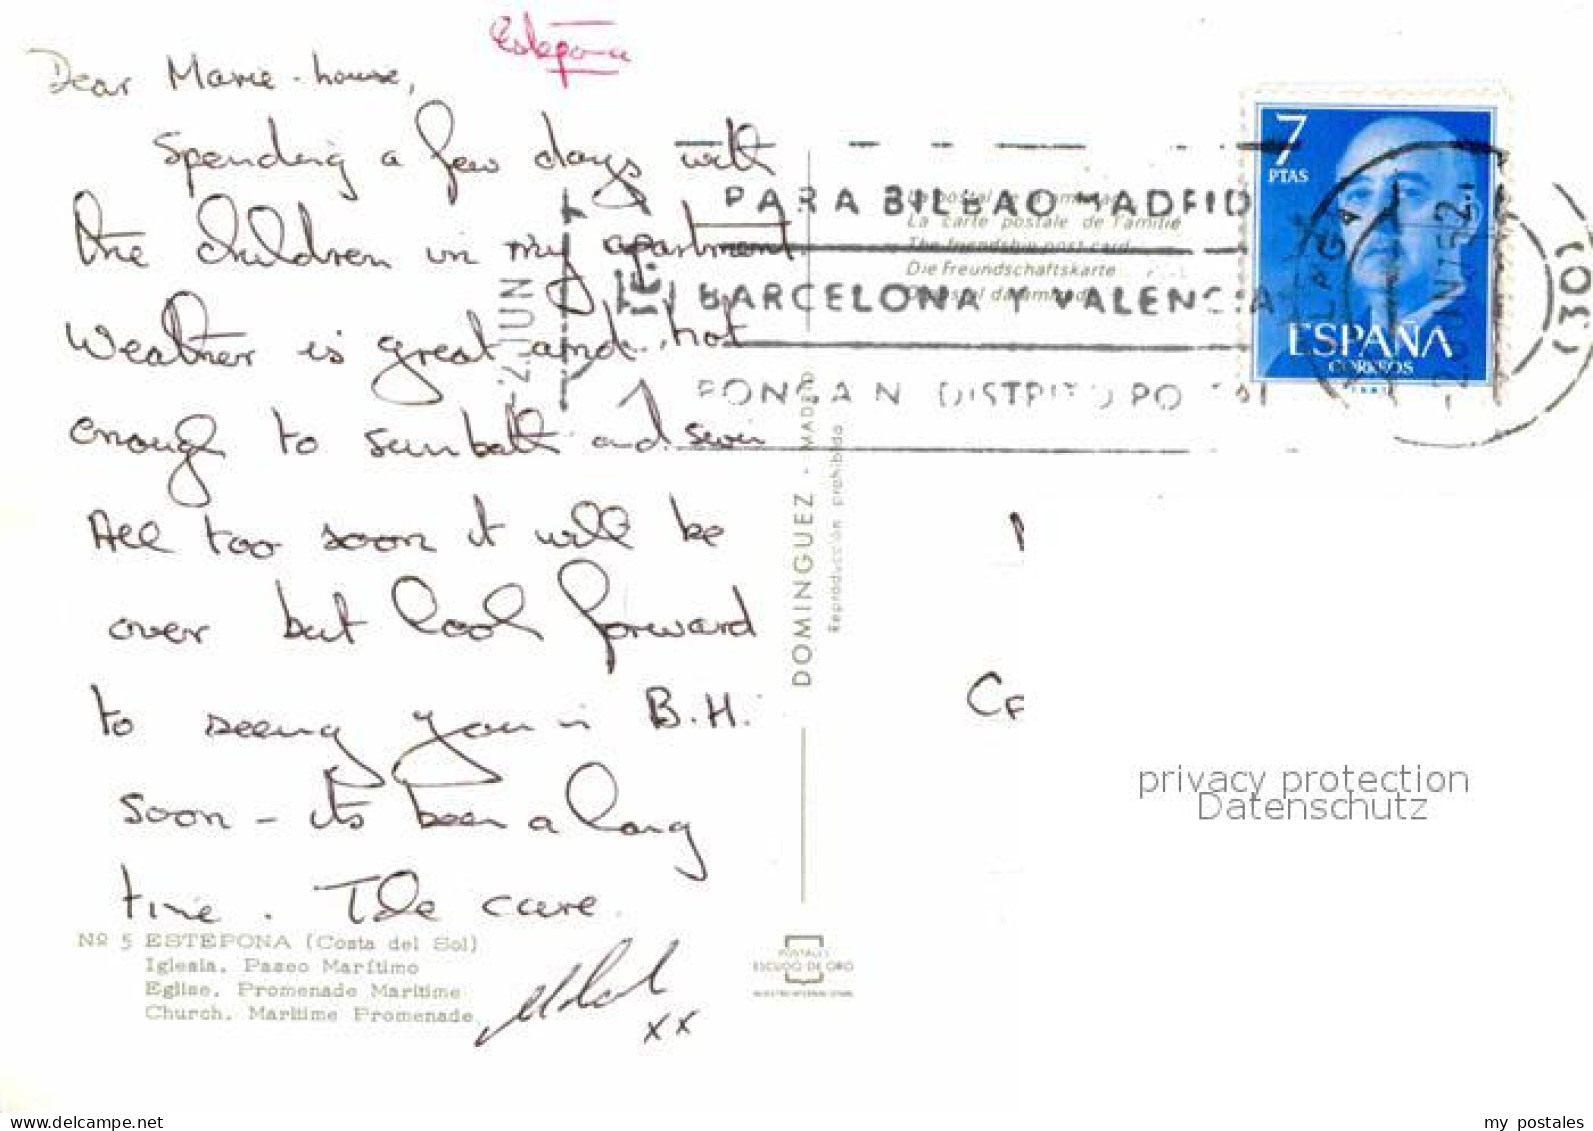 Estepona
Dear Marie-
Spending a few days with
the children in my apartment.
Weather is great and hot
enough to sunbath and swim
All too soon it will be
over but look forward
to seeing you in B.H.
soon - its been a long
time. Take care.
xx
Nº 5 ESTEPONA (Costa del Sol)
Iglesia. Paseo Marítimo
Eglise. Promenade Maritime
Church. Maritime Promenade
DOMINGUEZ - MADRID
Reproducción prohibida
POSTALES
ESCUDO DE ORO
La carte postale de l'amitié
The friendship post card
Die Freundschaftskarte
PARA BILBAO MADRID
BARCELONA Y VALENCIA
PONGAN DISTRITO PO
JUN
7
PTAS
ESPAÑA
CORREOS
(03)
privacy protection
Datenschutz
my postales